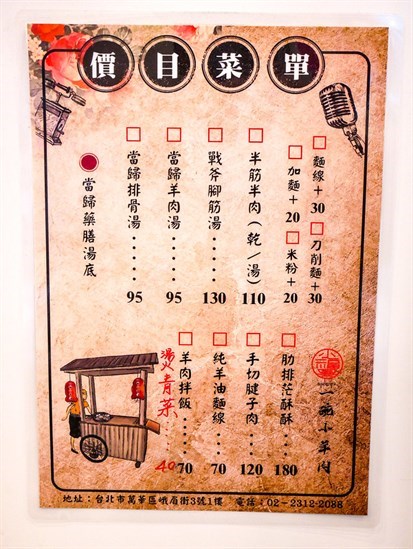 單菜目價
麵線+30
刀削麵+30
加麵+20
米粉+20
半筋半肉(乾/湯)110
戰斧腳筋湯‥‥130
當歸羊肉湯‥‥‥95
當歸排骨湯‥‥‥95
當歸藥膳湯底
一碗小羊肉
肋排茫酥酥‥‥180
手切腱子肉‥‥120
純羊油麵線‥‥70
羊肉拌飯‥‥‥70
燙青菜‥‥40
地址:台北市萬華區峨眉街3號1樓 電話:02-2312-2088